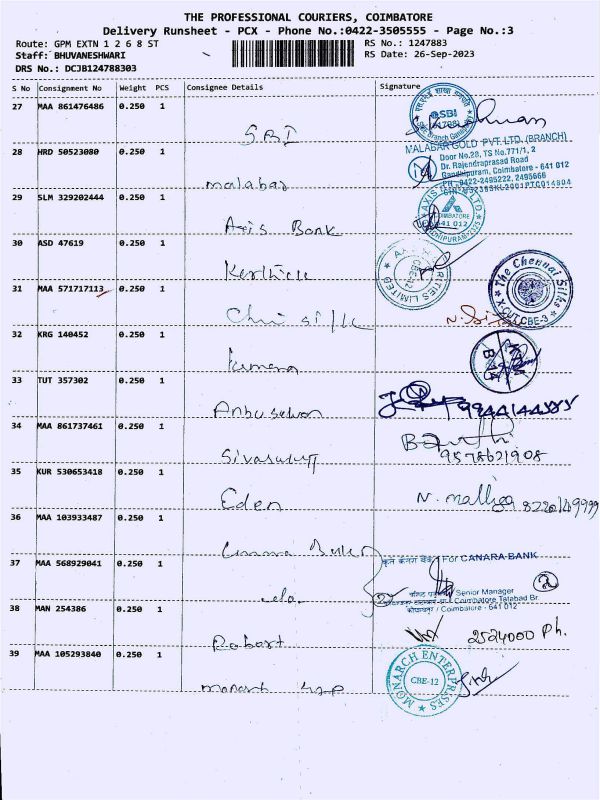 THE PROFESSIONAL COURIERS, COIMBATORE
Delivery Runsheet - PCX - Phone No.:0422-3505555 - Page No.:3
Route: GPM EXTN 1 2 6 8 ST
RS No.: 1247883
Staff: BHUVANESHWARI
RS Date: 26-Sep-2023
DRS No.: DCJB124788303
S No Consignment No Weight PCS Consignee Details Signature
27 MAA 861476486 0.250 1
SBI
SBI
28 HRD 50523080 0.250 1
malabar
MALABAR GOLD PVT. LTD. (BRANCH)
Door No.28, TS No.771/1, 2
Dr. Rajendraprasad Road
Gandhipuram, Coimbatore - 641 012
PH :0422-2495222, 2495666
29 SLM 329202444 0.250 1
Axis Bank
COIMBATORE
641 012
30 ASD 47619 0.250 1
Karthick
CBE-12
31 MAA 571717113 0.250 1
The Chennai Silks
CBE-3
32 KRG 140452 0.250 1
33 TUT 357302 0.250 1
Anbuselvan
34 MAA 861737461 0.250 1
9578621908
35 KUR 530653418 0.250 1
Eden
N. malliga
36 MAA 103933487 0.250 1
37 MAA 568929041 0.250 1
For CANARA BANK
Senior Manager
Coimbatore Tatabad Br.
Coimbatore - 641 012
2
38 MAN 254386 0.250 1
Robert
2524000 Ph.
39 MAA 105293840 0.250 1
MONARCH ENTERPRISES
CBE-12